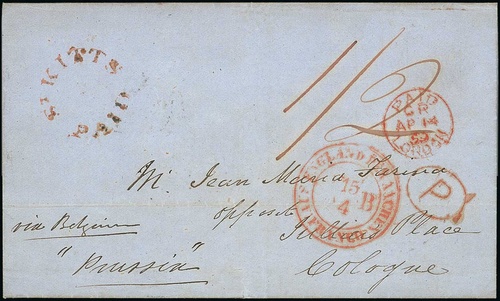 ST KITTS
PAID
1/2
PAID
CR
AP 14
P
AUS ENGLAND PER AACHEN
15
4
B
Mr. Jean Maria Farina
opposite
Jullichs Place
via Belgium
"Prussia"
Cologne